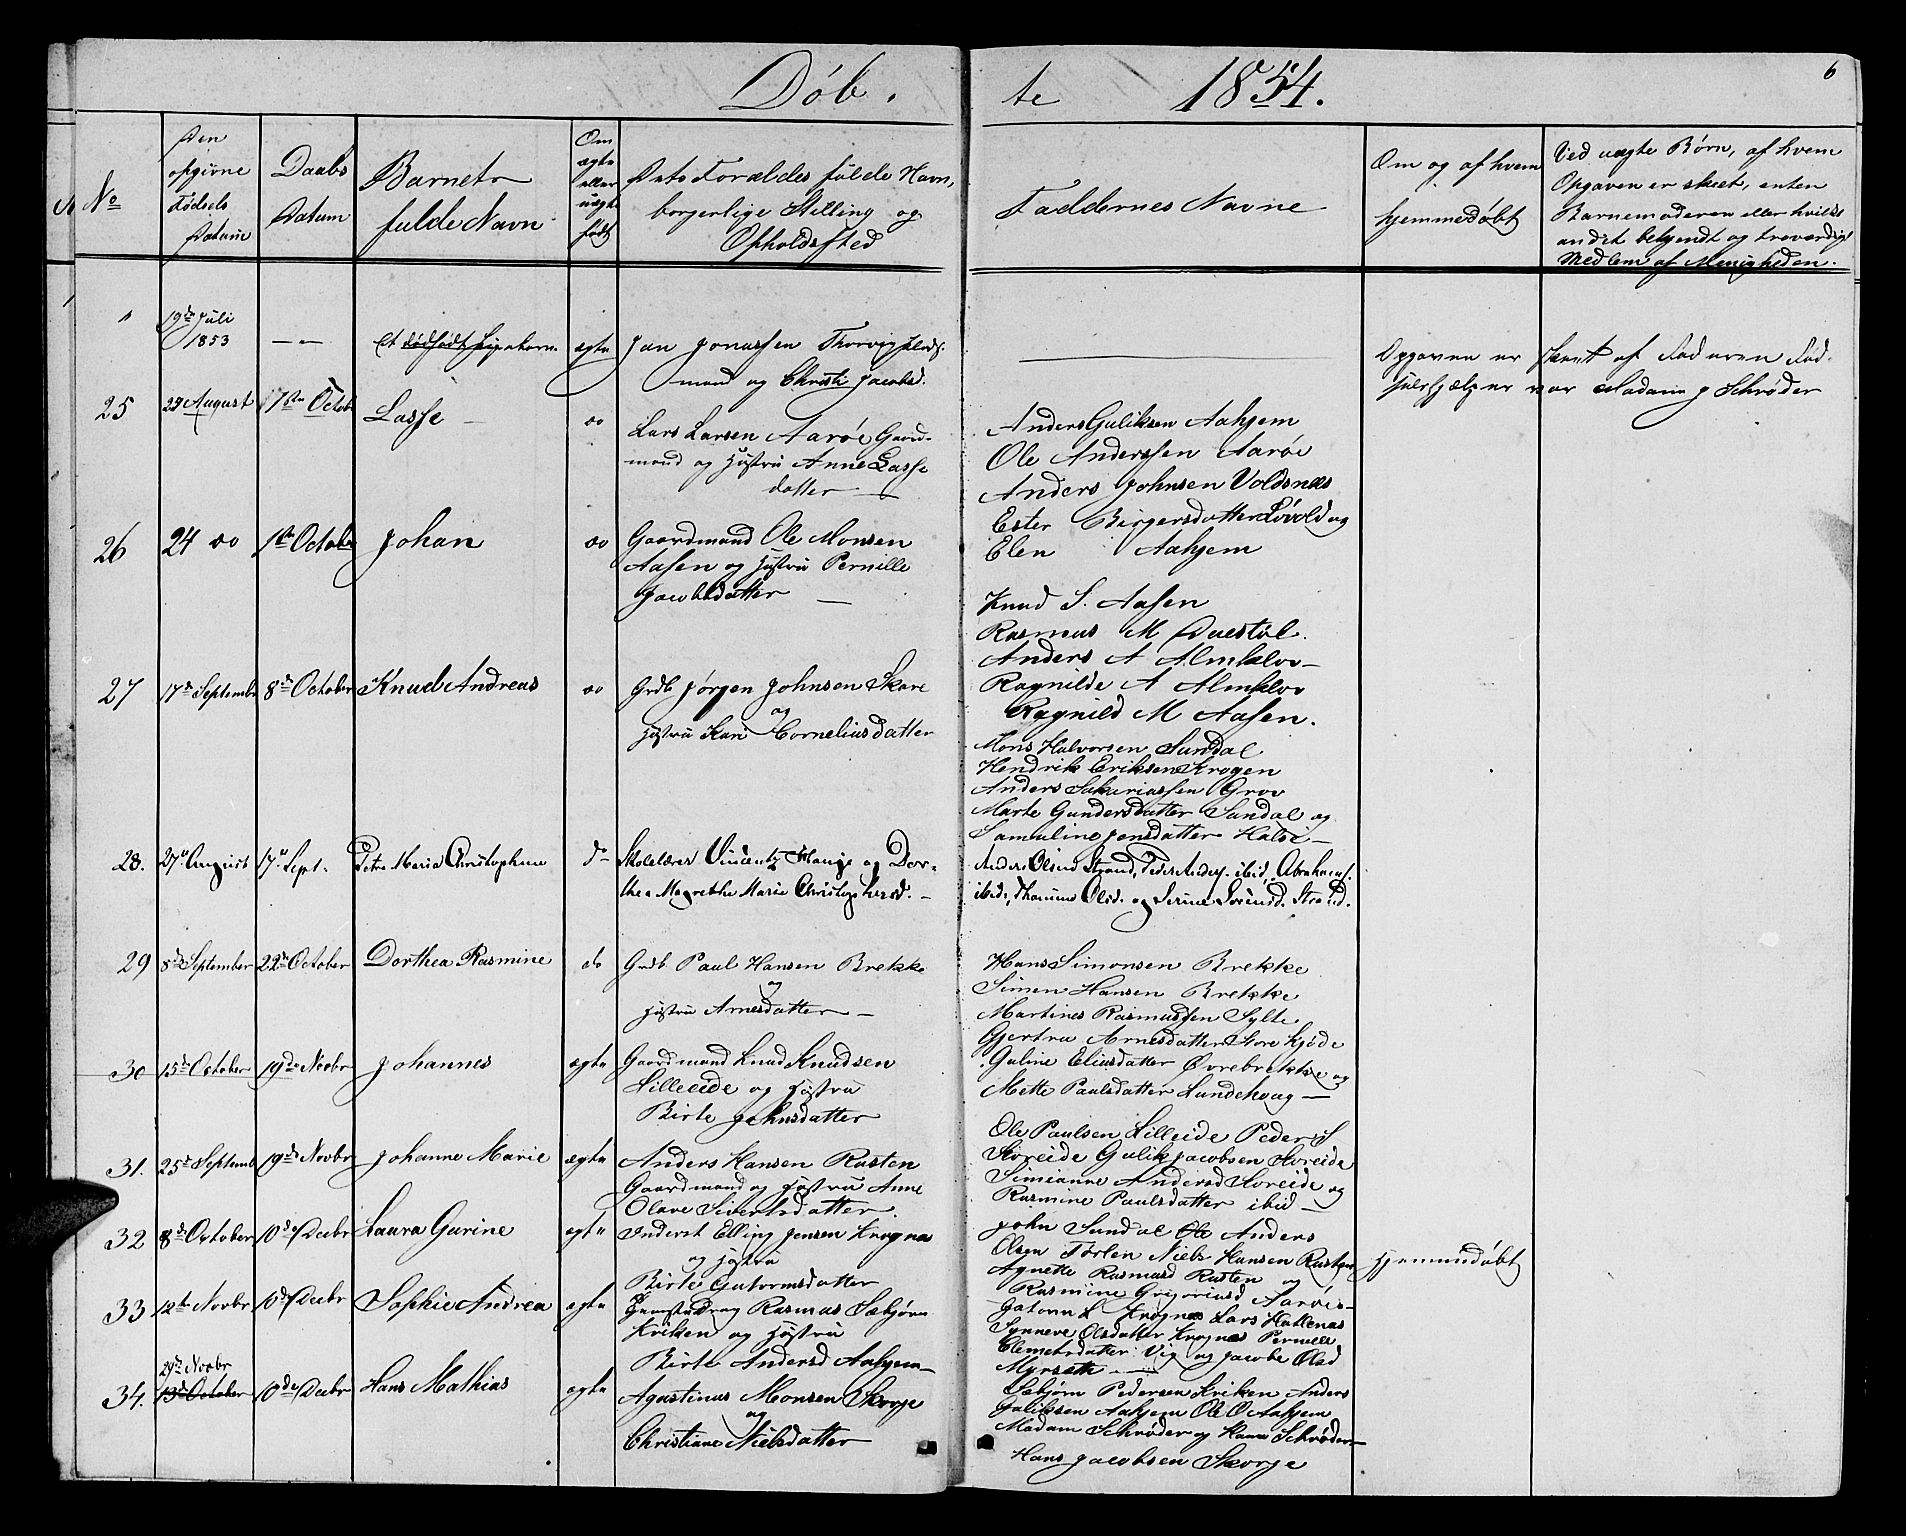 Döb.
te 1854.
6
No
Den
opgivne
Födsels
Datum
Daabs
Datum
Barnets
fulde Navn
Om
ægte
eller
uægte
født
Dets Forældes fulde Navn,
borgerlige Stilling og
Opholdssted
Faddernes Navne
Om og af hvem
hjemmedøbt
Ved uægte Børn, af hvem
Opgaven er skeet, enten
Barnemoderen eller hvilke
andet bekjendt og troværdigt
Medlem af Menigheden.
" 19de Juli
1853 — " — et dödfödt Pigebarn ægte Jan Jonassen Thorvig Plads-
mand og Christi Jacobsd.
Opgaven er skeet af Faderen Föd-
selshjælper var Madam J Schrøder
25 29 August 17de Octob Lasse — do
Lars Larsen Aarøe Gaard-
mand og Hustru Anne Lasse
datter —
Anders Guliksen Aahjem
Ole Anderssen Aaröe
Anders Johnsen Voldsnæs
Ester Birgersdatter Løvold og
Elen Aahjem
26 24 do 1ste October Johan do Gaardmand Ole Monsen
Aasen og Hustru Pernille
Jacobsdatter —
Knud S. Aasen
Rasmus M Duestöl.
Anders A Almklov —
Ragnilde A Almklov
Ragnild M Aasen.
27 17de Septembr 8de October Knud Andreas do Grdb Jørgen Johnsen Skare
og
Hustru Kari Cornelius datter
Mons Halvorsen Sundal
Hendrik Eriksen Krogen
Anders Sakariassen Grov
Marte Gundersdatter Sundal og
Samuline Jensdatter Halse —
28. 27de August 17de Sept. Petra Maria Christophine do Skolelærer Vincentz Hauge og Dor-
thea Magrethe Marie Christophersd. —
Anders Olsen Strand, Peder Anders. ibid, Abraham J.
ibid, Thomine Olsd. og Serine Sørensd. Strand.
29 8de September 22de October Dorthea Rasmine do Grdb Paul Hansen Brekke
og
Hustru Arnesdatter —
Hans Simonsen Brekke
Simen Hansen Brekke
Martines Rasmussen Sylte
Gjertru Arnesdatter Store Hjöde
Guline Eliusdatter Övrebrekke og
Mette Paulsdatter Lundehaug —
30 15de October 19de Novbr Johannes ægte Gaardmand Knud Knudsen
Lilleeide og Hustru
Birte Johnsdatter
Ole Paulsen Lilleide Peder S
Storeide Gulik Jacobsen Storeide
Simianne Andersd Storeide og
Rasmine Paulsdatter ibid —
31. 25de Septemb 19de Novbr Johanne Marie ægte Anders Hansen Rusten
Gaardmand og Hustru Anne
Olave Sivertsdatter.
John Sundal Ole Anders
Olsen Förlen Niels Hansen Rusten
Agnette Rasmusd Rusten og
Rasmine Grigoriusd Aarøe —
hjemmedøbt
32 8de October 10de Decbr Laura Gurine ægte Inderst Elling Jensen Krogna
og Hustru
Birte Gutormsdatter
Gutorm L Krognæs Lars Hallenæs
Synneve Olsdatter Krognæs Pernelle
Clemetsdatter Vig og Jacobe Olsd
Myrseth —
33 12te Novbr 10de Decbr Sophie Andrea ægte Rasmus Sæbjörn
Kriken og Hustru
Birte Andersd Aahjem —
Sæbjörn Pedersen Kriken Anders
Guliksen Aahjem Ole O Aahjem
Madam Schrøder og Hanna Schrøder —
34. 29de Novbr
13de October 10de Decbr Hans Mathias ægte Agastinus Monsen Skorge
og
Christiane Nielsdatter
Hans Jacobsen Skorge